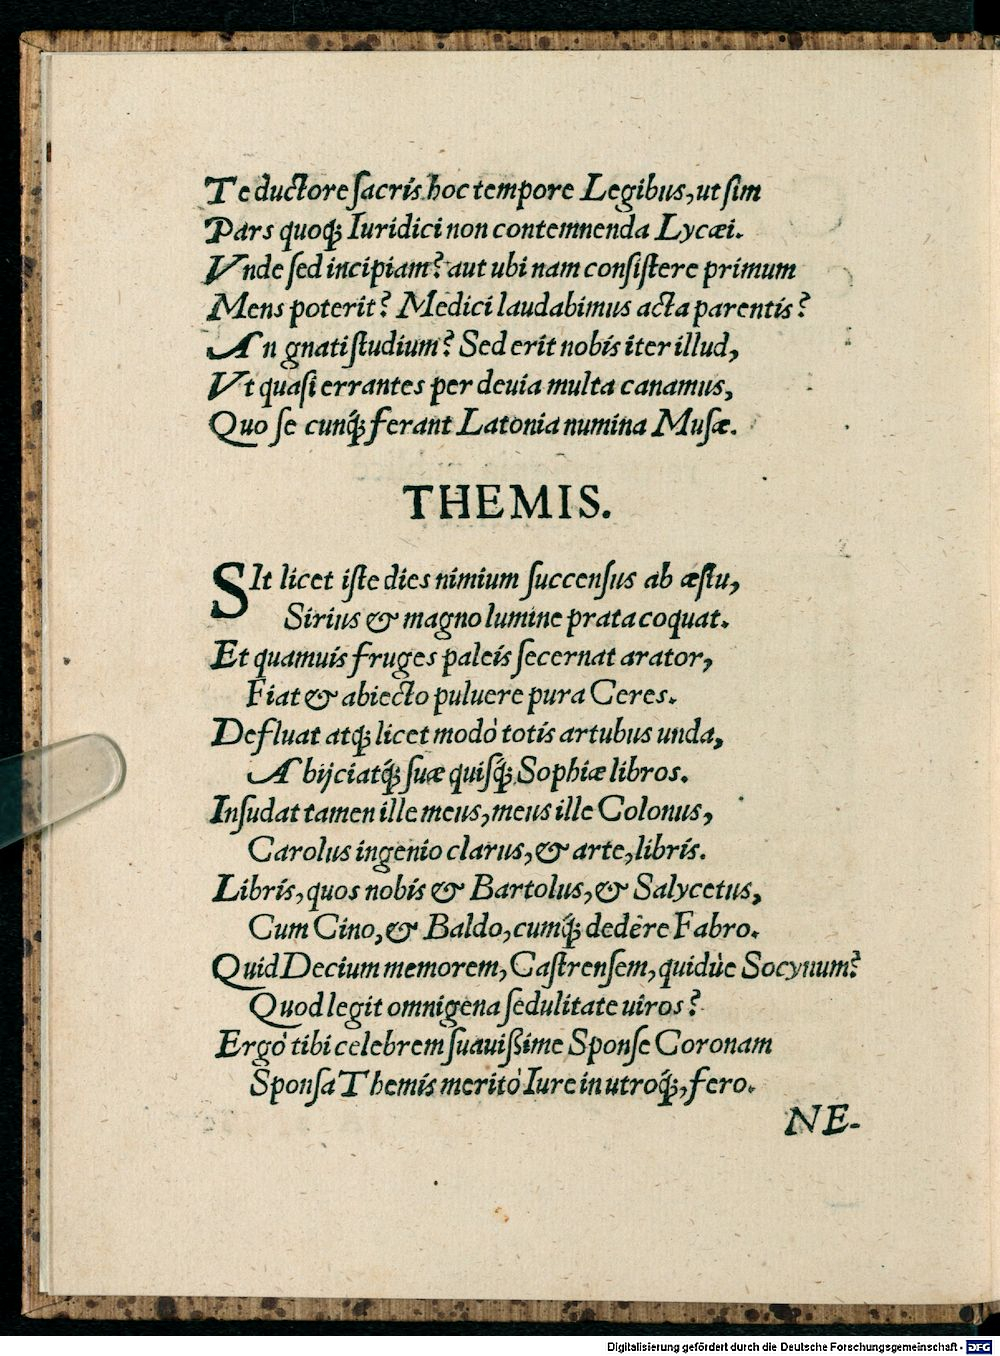 Te ductore sacris hoc tempore Legibus, ut sim
Pars quoq́; Iuridici non contemnenda Lycæi.
Vnde sed incipiam? aut ubi nam consistere primum
Mens poterit? Medici laudabimus acta parentis?
An gnati studium? Sed erit nobis iter illud,
Vt quasi errantes per deuia multa canamus,
Quo se cunq́; ferant Latonia numina Musæ.
THEMIS.
SIt licet iste dies nimium succensus ab æstu,
Sirius & magno lumine prata coquat.
Et quamuis fruges paleis secernat arator,
Fiat & abiecto puluere pura Ceres.
Defluat atq; licet modò totis artubus unda,
Abijciatq́; suæ quisq́; Sophiæ libros.
Insudat tamen ille meus, meus ille Colonus,
Carolus ingenio clarus, & arte, libris.
Libris, quos nobis & Bartolus, & Salycetus,
Cum Cino, & Baldo, cumq́; dedêre Fabro.
Quid Decium memorem, Castrensem, quidùe Socynum?
Quod legit omnigena sedulitate uiros?
Ergò tibi celebrem suauißime Sponse Coronam
Sponsa Themis meritò Iure in utroq́;, fero.
NE-
Digitalisierung gefördert durch die Deutsche Forschungsgemeinschaft - DFG